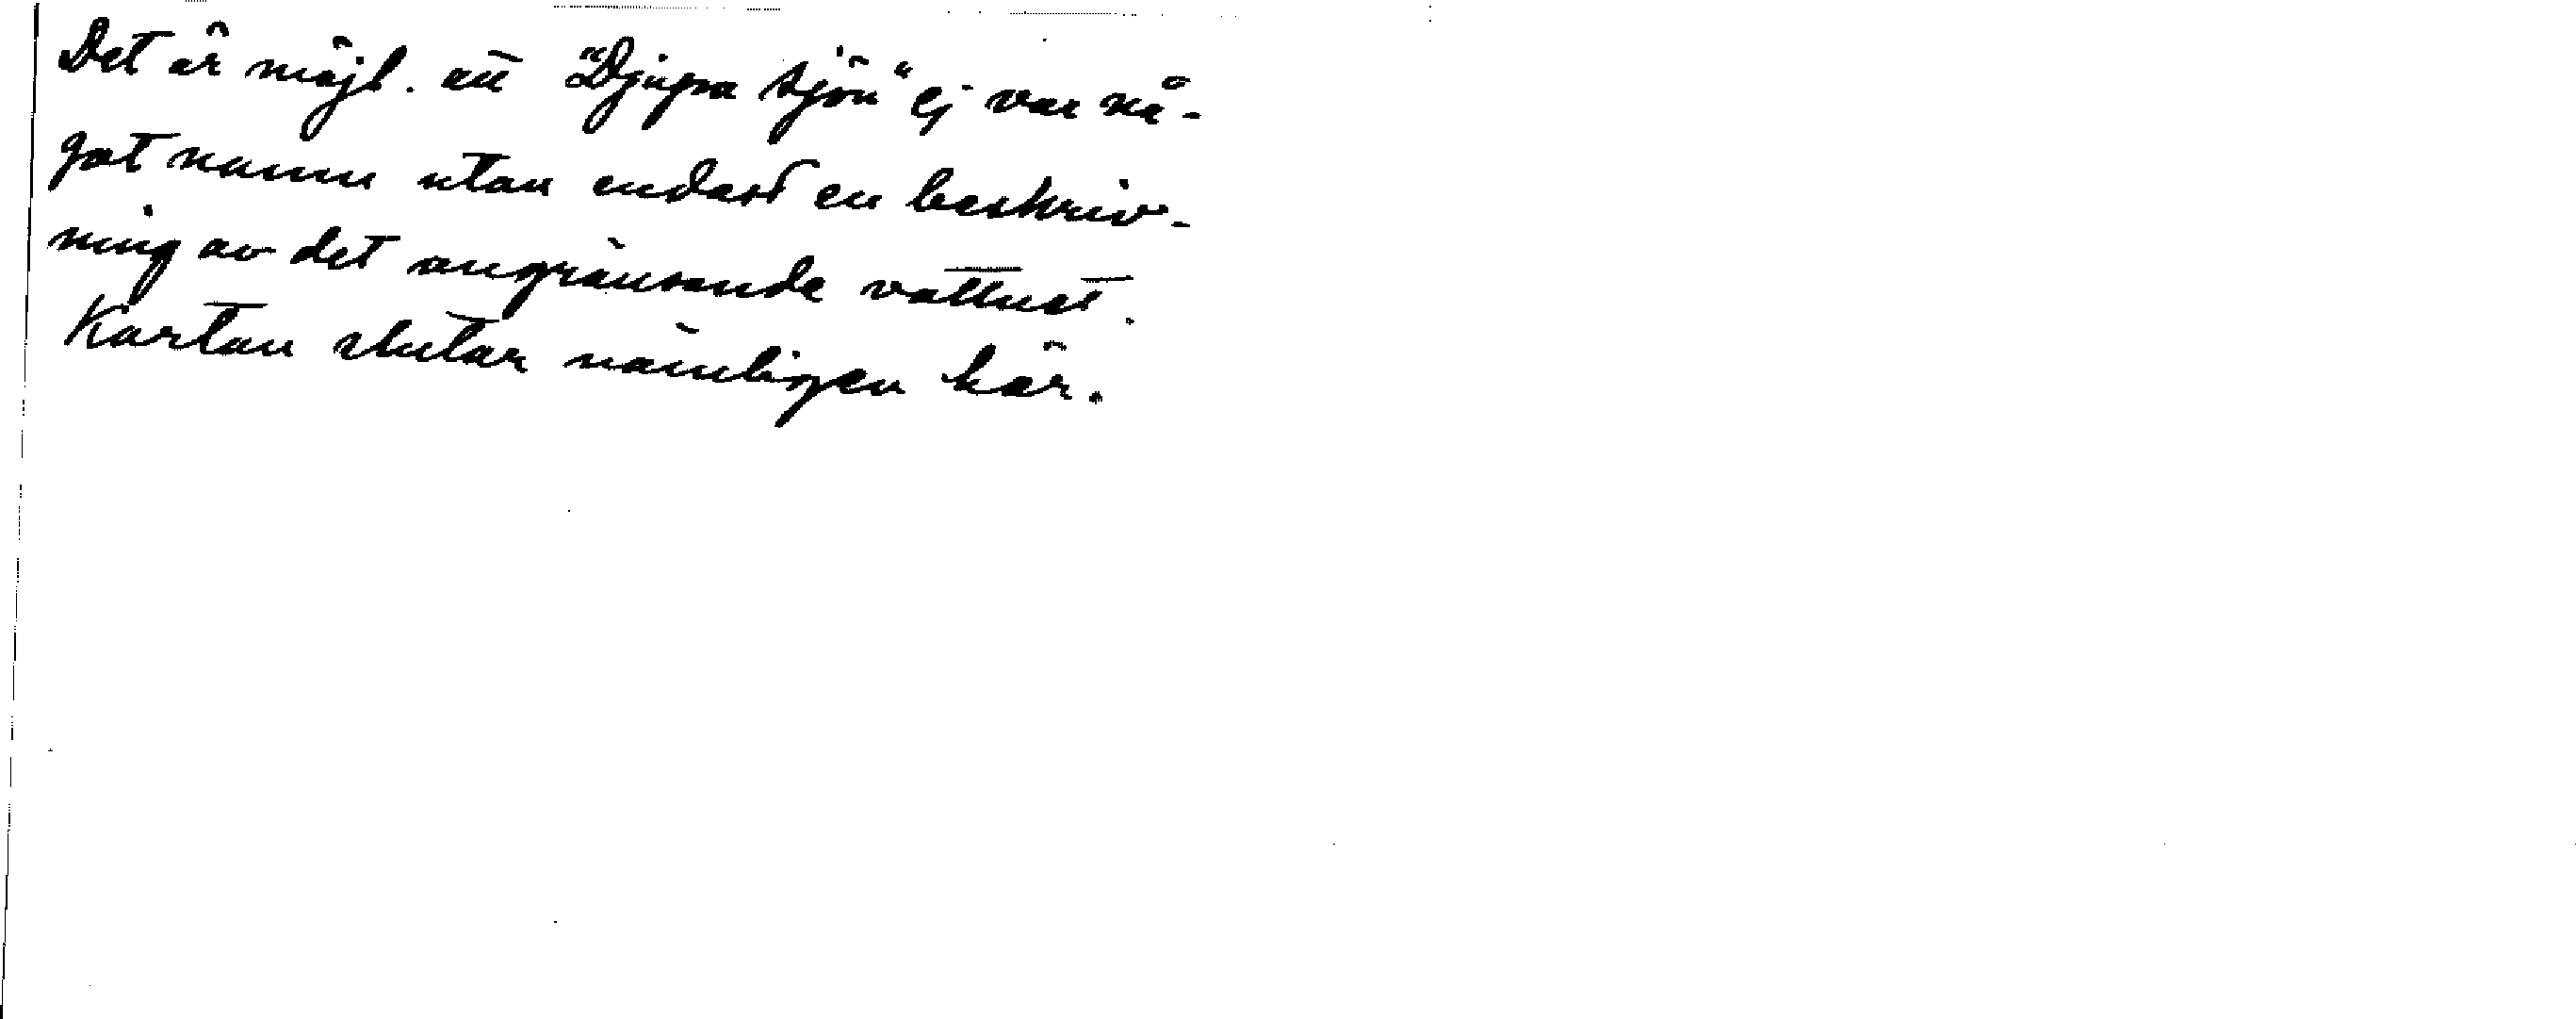 Det är möjl. att "Djupa sjön" ej var nå-
got namn utan endast en beskriv-
ning av det angränsande vattnet.
Kartan slutar nämligen här.